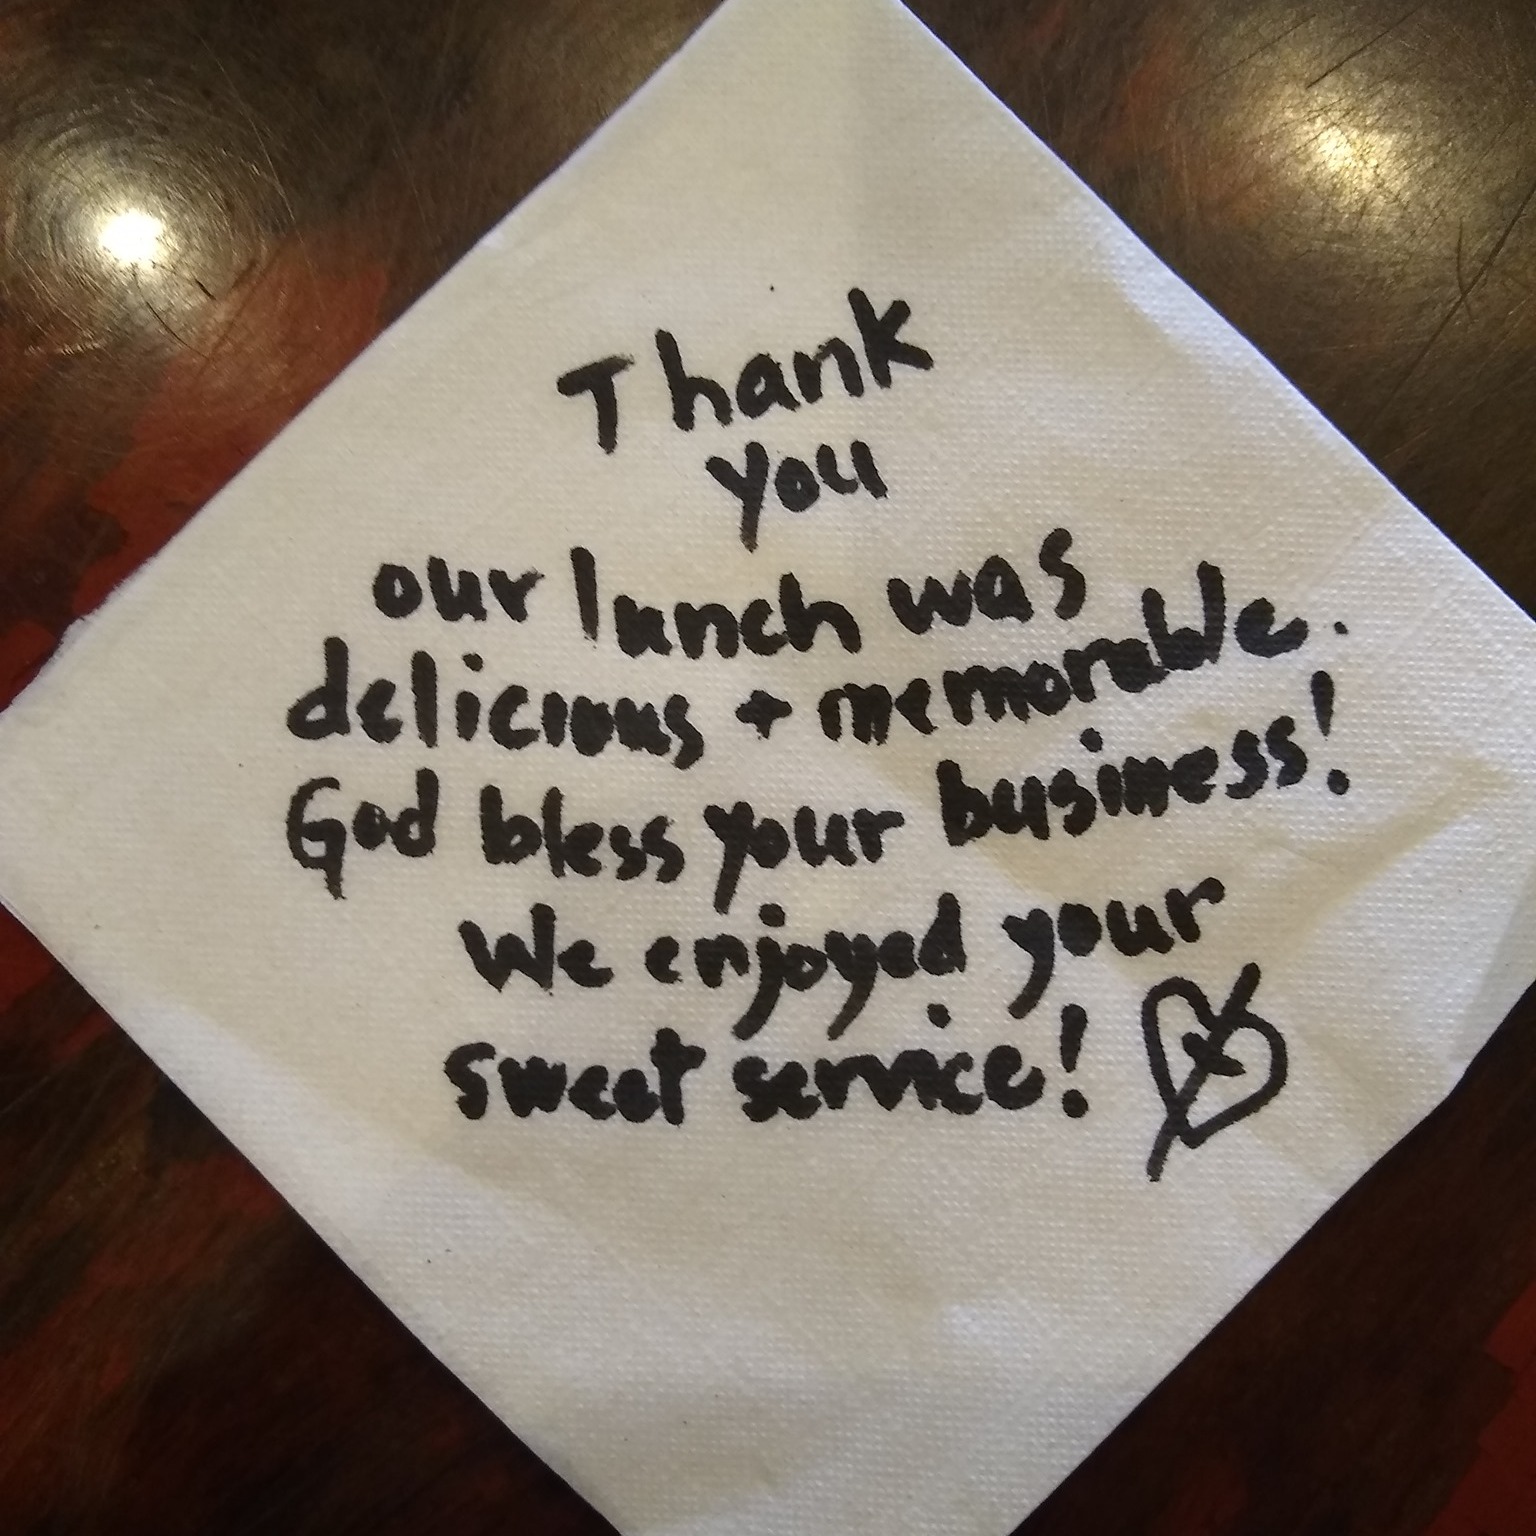 Thank
you
our lunch was
delicious + memorable.
God bless your business!
We enjoyed your
sweet service!